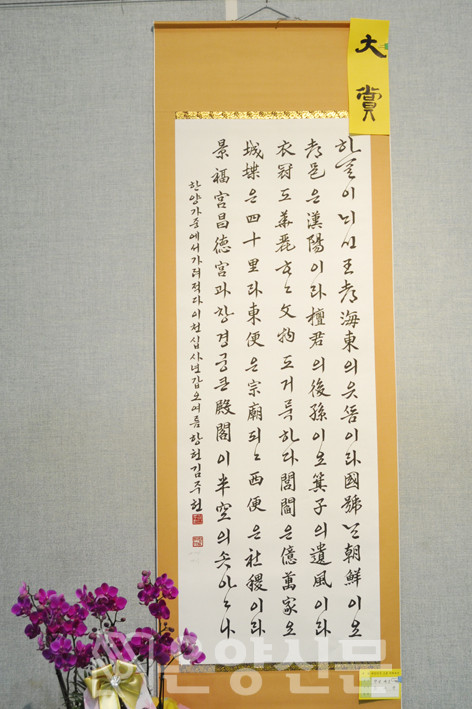 大賞
하늘이늬신王都海東의웃씀이라國號는朝鮮이오
都邑은漢陽이라檀君의後孫이오箕子의遺風이라
衣冠도華麗文物도거룩하다閭閻은億萬家오
城堞은四十里라東便은宗廟되고西便은社稷이라
景福宮昌德宮과창경궁큰殿閣이半空의
한양가중에서가려적다이천십사년갑오여름향헌김주헌
온양신문